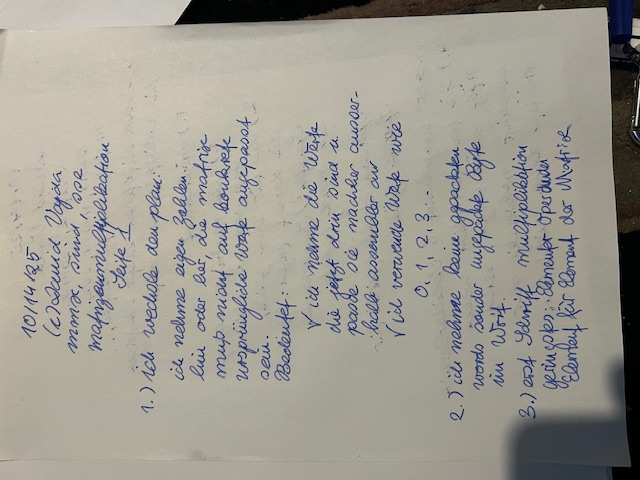 10/14/25
(c) David Vajda
mmx, simd, sse
matrizenmultiplikation
Seite 1
1.) ich wechsle den plan:
ich nehme eigen zahlen.
hin oder her, die matrix
muß nicht auf konkrete
ursprüngliche Werte angepasst
sein.
Bedeutet:
✓ ich nehme die Werte
die jetzt drin sind u
passe sie nachher ausser-
halb assembler an
✓ ich verwende Werte wie
0, 1, 2, 3 ...
2.) ich nehme keine gepackten
words sonder ungepackte Byte
im Wort.
3.) erst Schritt multiplikation
geringster Elementer Operanden
Element für Element der Matrix